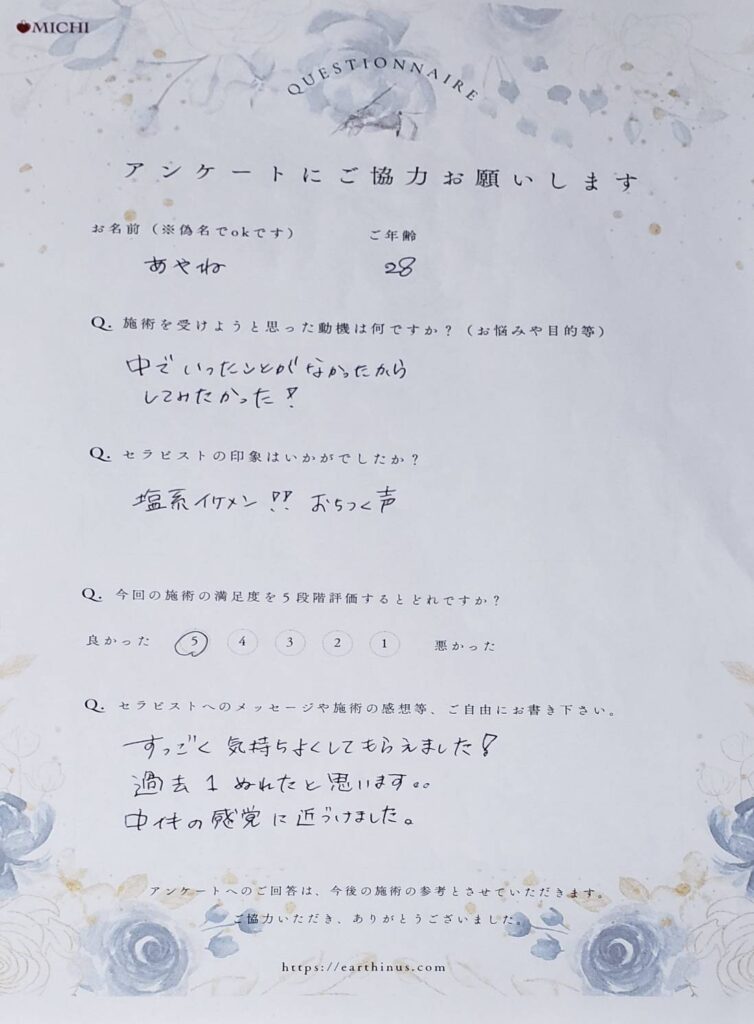 MICHI
QUESTIONNAIRE
アンケートにご協力お願いします
お名前（※偽名でokです） ご年齢
あやね 28
Q. 施術を受けようと思った動機は何ですか？（お悩みや目的等）
中でいったことがなかったから
してみたかった！
Q. セラピストの印象はいかがでしたか？
塩系イケメン!! おちつく声
Q. 今回の施術の満足度を5段階評価するとどれですか？
良かった 5 4 3 2 1 悪かった
Q. セラピストへのメッセージや施術の感想等、ご自由にお書き下さい。
すっごく気持ちよくしてもらえました！
過去1ぬれたと思います。。
中イキの感覚に近づけました。
アンケートへのご回答は、今後の施術の参考とさせていただきます。
ご協力いただき、ありがとうございました。
https://earthinus.com